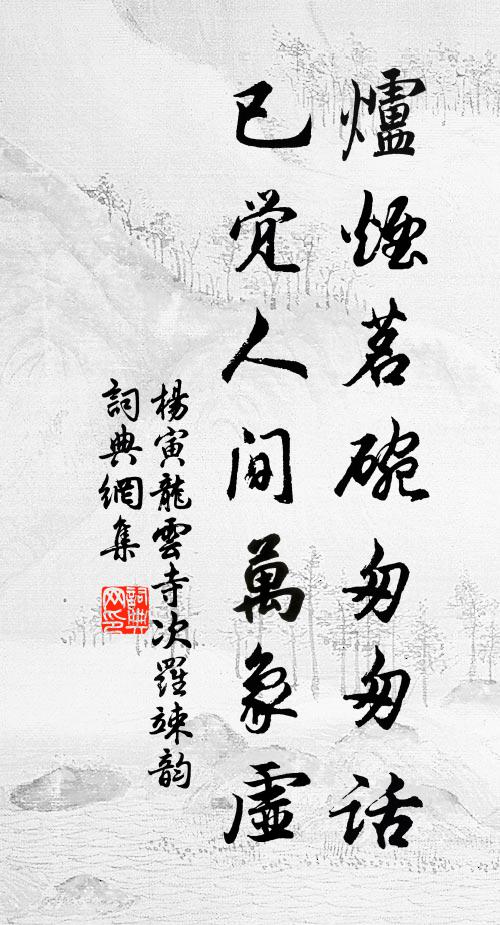 爐煙茗碗匆匆話
已觉人间萬象虛
楊寅龍雲寺次羅竦韵
詞典網集
詞典网印